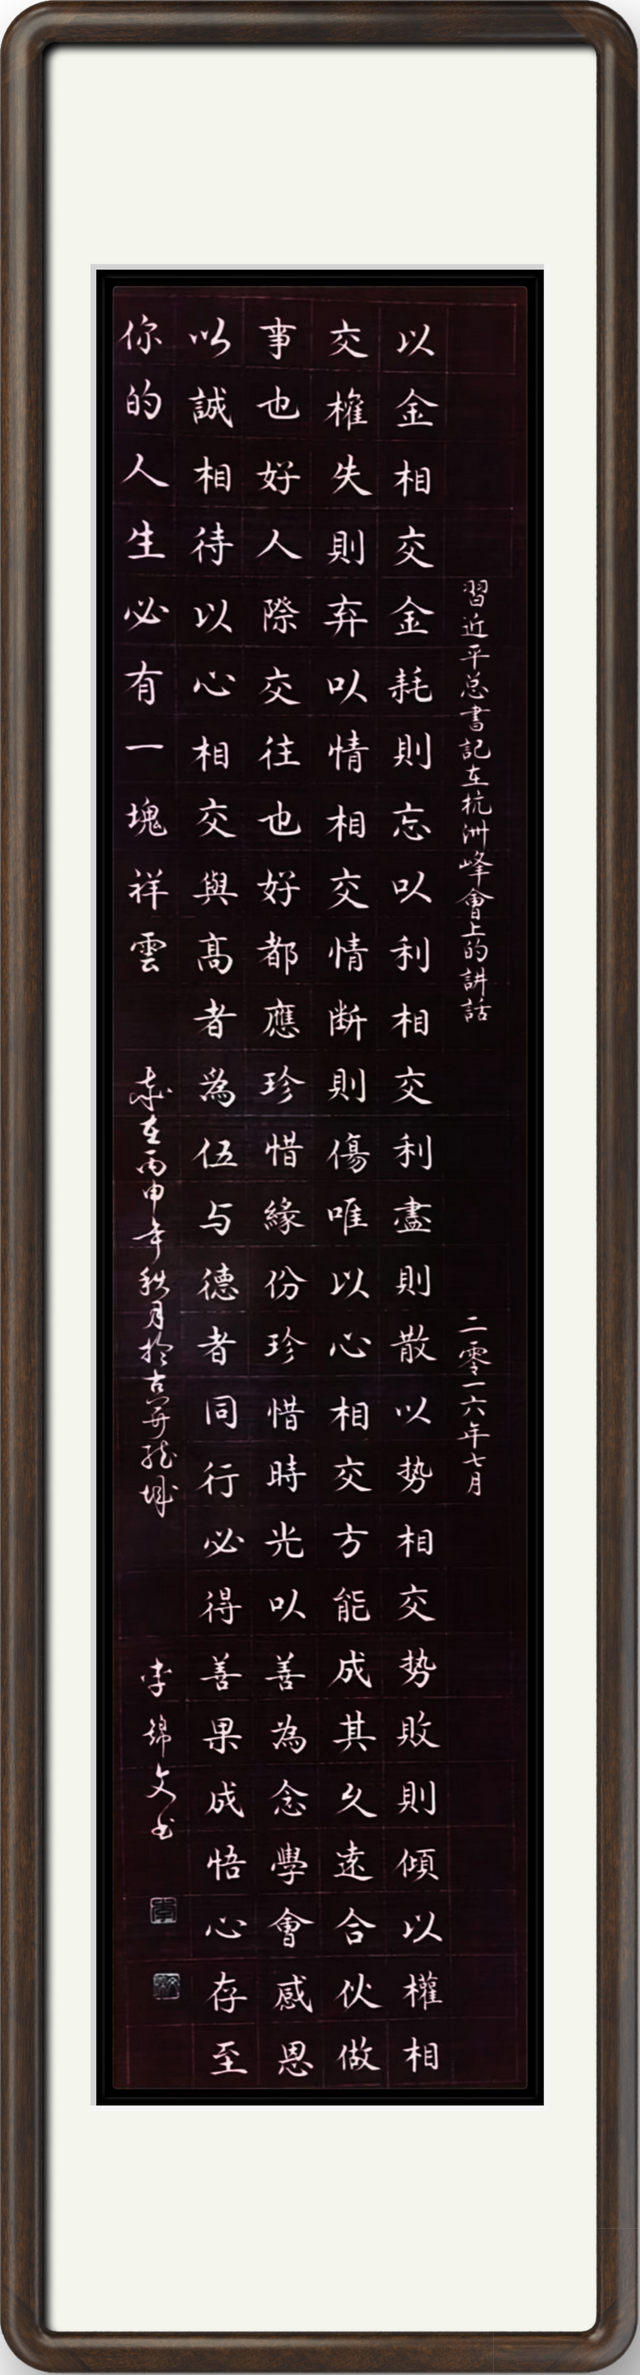 習近平总書記在杭洲峰會上的講話 二零一六年七月
以金相交金耗則忘以利相交利盡則散以势相交势敗則傾以權相
交權失則弃以情相交情断則傷唯以心相交方能成其久遠合伙做
事也好人際交往也好都應珍惜緣份珍惜時光以善為念學會感恩
以誠相待以心相交與髙者為伍与德者同行必得善果成悟心存至
你的人生必有一塊祥雲 歲在丙申年秋月於古并龍城 李文书